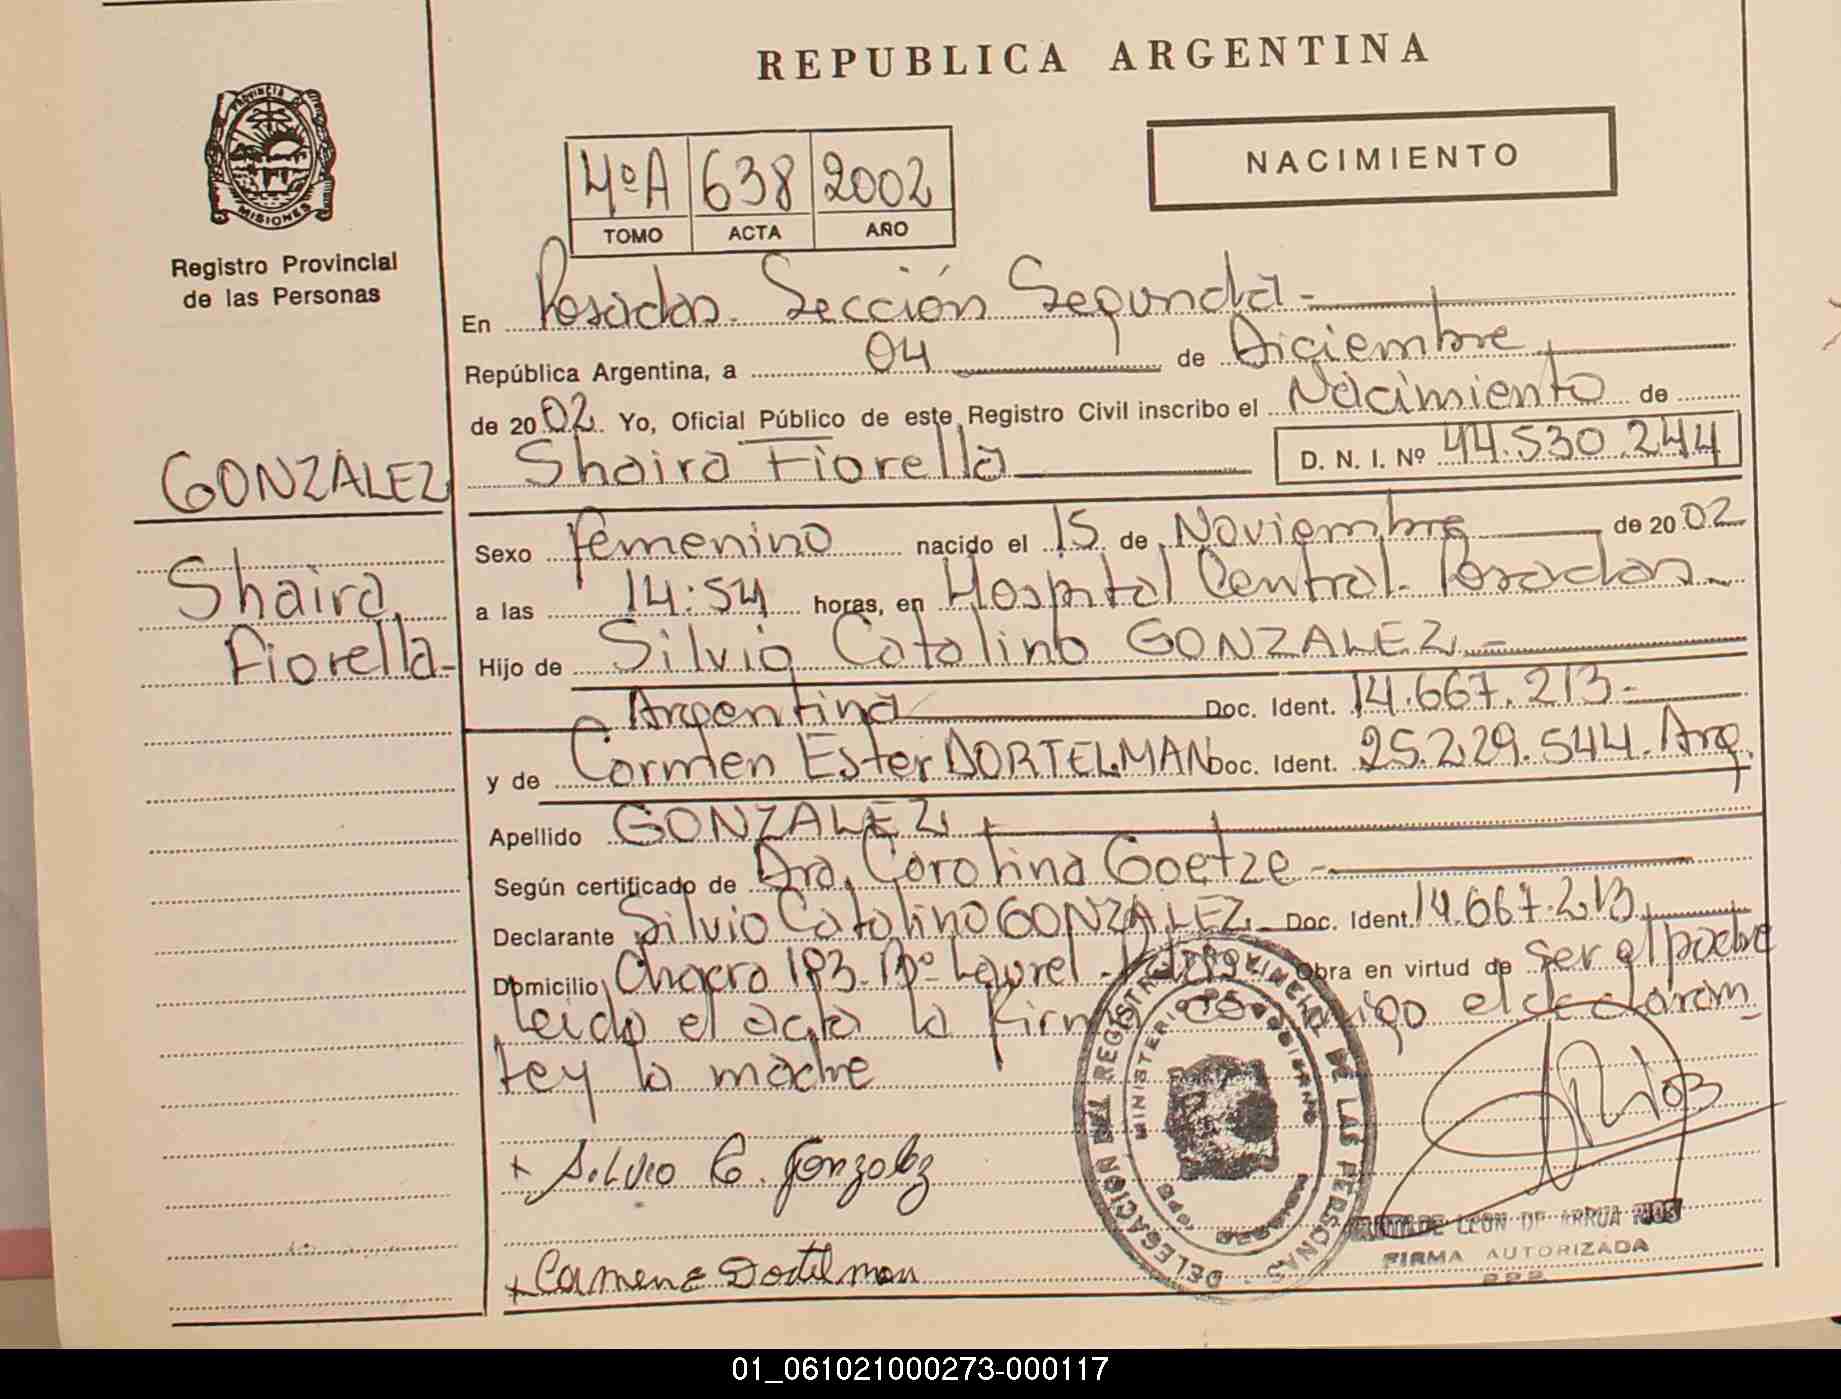 REPUBLICA ARGENTINA
PROVINCIA DE
MISIONES
Registro Provincial
de las Personas
NACIMIENTO
4ºA 638 2002
TOMO ACTA AÑO
En Posadas Sección Segunda -
República Argentina, a 04 de Diciembre
de 2002. Yo, Oficial Público de este Registro Civil inscribo el Nacimiento de
Shaira Fiorella D. N. I. Nº 44.530.244
GONZALEZ
Shaira
Fiorella-
Sexo femenino nacido el 15 de Noviembre de 2002
a las 14:54 horas, en Hospital Central. Posadas -
Hijo de Silvio Catalino GONZALEZ -
Argentina Doc. Ident. 14.667.213-
y de Carmen Ester DORTELMAN Doc. Ident. 25.229.544. Arg.
Apellido GONZALEZ
Según certificado de Dra. Carolina Goetze -
Declarante Silvio Catalino GONZALEZ - Doc. Ident. 14.667.213
Domicilio Chacra 183. Bº Laurel - Obra en virtud de ser el padre
leido el acta la firma conmigo el declaran_
te y la madre
+ Silvio C. Gonzalez
+ Carmen E Dortelman
DELEGACION DEL REGISTRO PROVINCIAL DE LAS PERSONAS
MINISTERIO DE GOBIERNO
MATILDE LEON DE ARRUA RIOS
FIRMA AUTORIZADA
R.P.P.
01_061021000273-000117